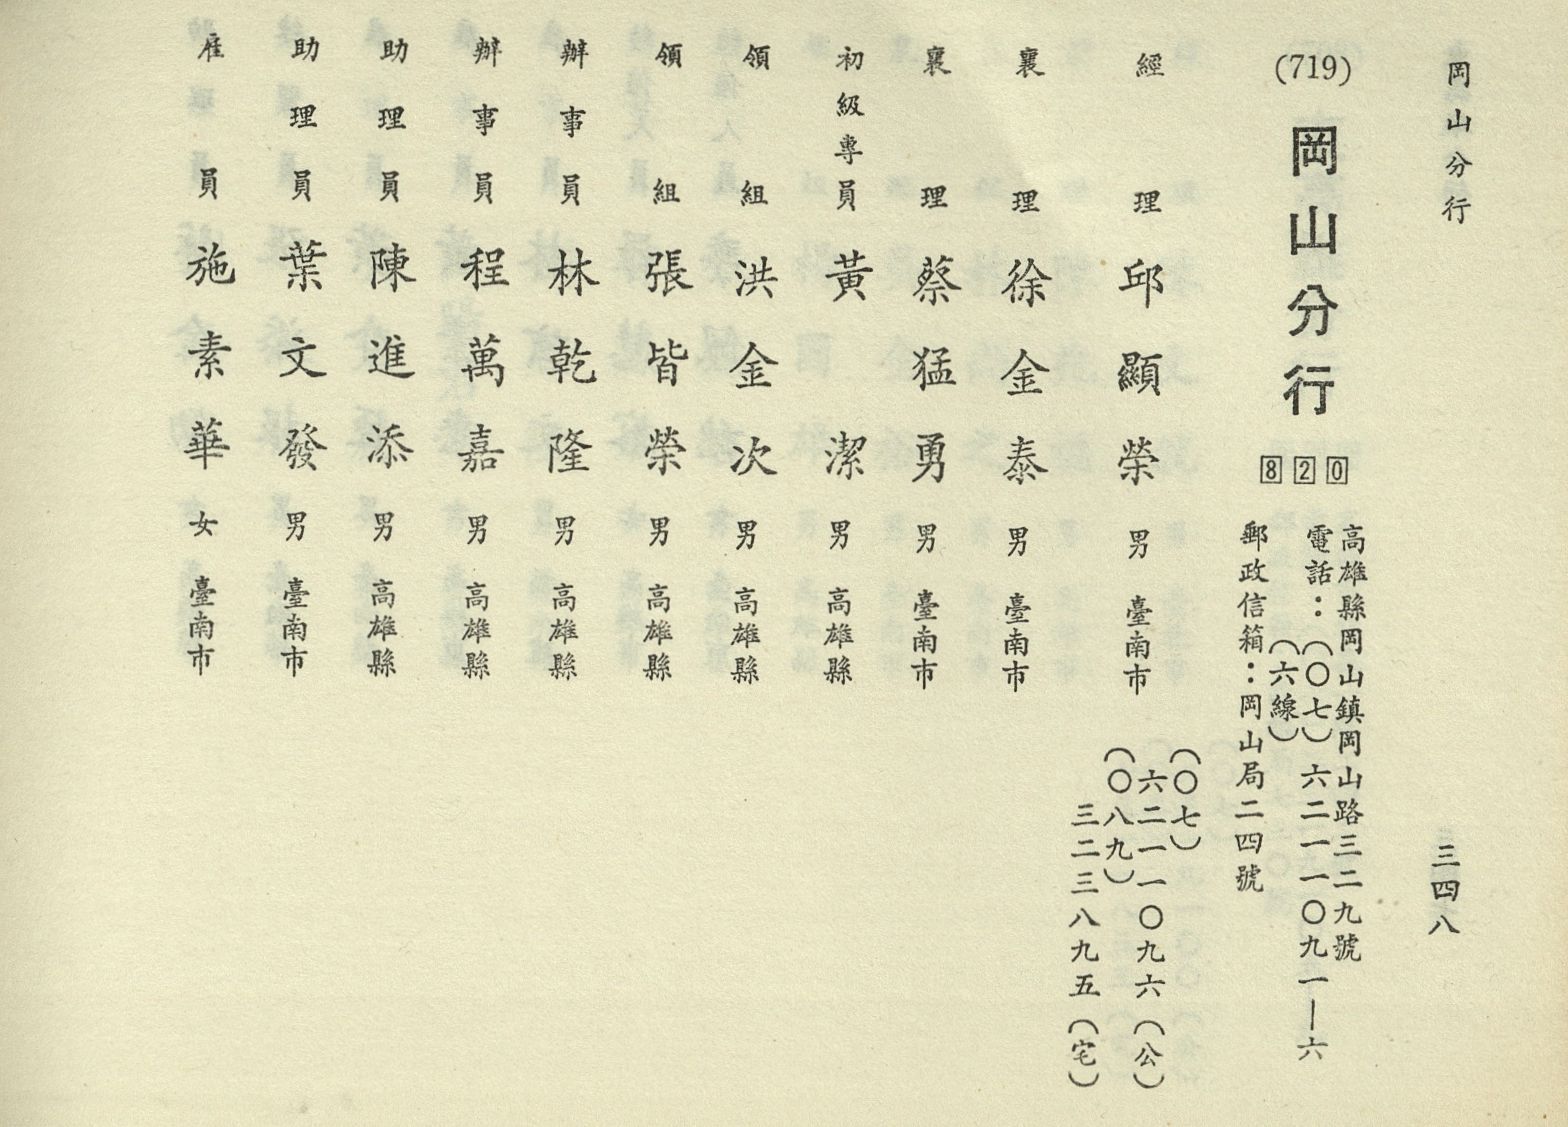 岡山分行
三四八
(719) 岡山分行 820
高雄縣岡山鎮岡山路三二九號
電話：（〇七）六二一一〇九一—六
（六線）
郵政信箱：岡山局二四號
經理 邱顯榮 男 臺南市
（〇七）
六二一一〇九六（公）
（〇八九）
三二三八九五（宅）
襄理 徐金泰 男 臺南市
襄理 蔡猛勇 男 臺南市
初級專員 黃潔 男 高雄縣
領組 洪金次 男 高雄縣
領組 張皆榮 男 高雄縣
辦事員 林乾隆 男 高雄縣
辦事員 程萬嘉 男 高雄縣
助理員 陳進添 男 高雄縣
助理員 葉文發 男 臺南市
雇員 施素華 女 臺南市